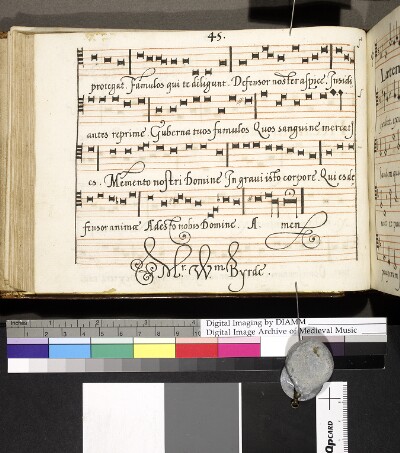 45.
protegat. Famulos qui te diligunt. Defensor noster aspice. Insidi
antes reprime Guberna tuos famulos Quos sanguine mercat
es. Memento nostri Domine In gravi isto corpore Qui es de
fensor animæ Adesto nobis Domine. A men
Mr. Wm Byrde.
Inches 1 2
Digital Imaging by DIAMM
Digital Image Archive of Medieval Music